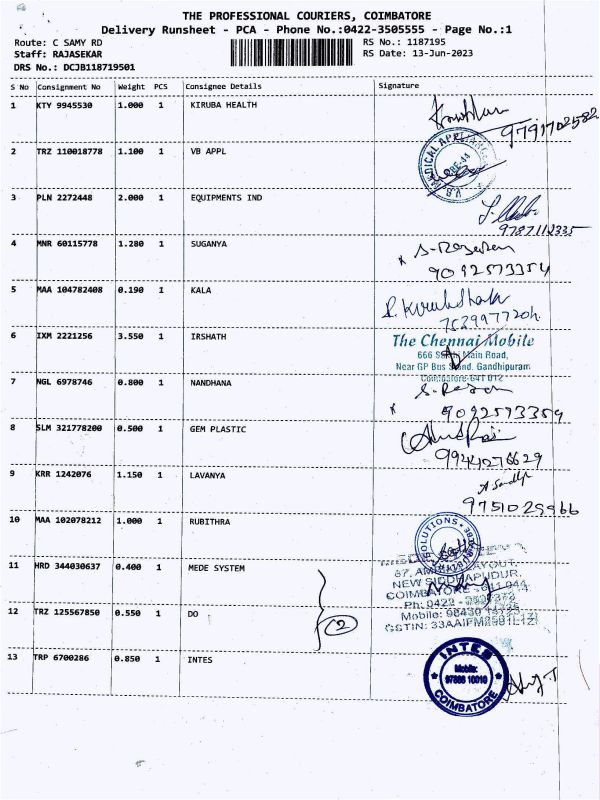 THE PROFESSIONAL COURIERS, COIMBATORE
Delivery Runsheet - PCA - Phone No.:0422-3505555 - Page No.:1
Route: C SAMY RD
RS No.: 1187195
Staff: RAJASEKAR
RS Date: 13-Jun-2023
DRS No.: DCJB118719501
S No Consignment No Weight PCS Consignee Details Signature
1 KTY 9945530 1.000 1 KIRUBA HEALTH
9791702582
2 TRZ 110018778 1.100 1 VB APPL
3 PLN 2272448 2.000 1 EQUIPMENTS IND
9787112335
4 MNR 60115778 1.280 1 SUGANYA
9092573354
5 MAA 104782408 0.190 1 KALA
6 IXM 2221256 3.550 1 IRSHATH
The Chennai Mobile
Main Road,
Near GP Bus Stand. Gandhipuram
7 NGL 6978746 0.800 1 NANDHANA
9092573359
8 SLM 321778200 0.500 1 GEM PLASTIC
9944276629
9 KRR 1242076 1.150 1 LAVANYA
9751029966
10 MAA 102078212 1.000 1 RUBITHRA
SOLUTIONS
11 HRD 344030637 0.400 1 MEDE SYSTEM
NEW SIDDHAPUDUR,
COIMBATORE
12 TRZ 125567850 0.550 1 DO
2
13 TRP 6700286 0.850 1 INTES
INTES
Mobile:
97886 10010
COIMBATORE